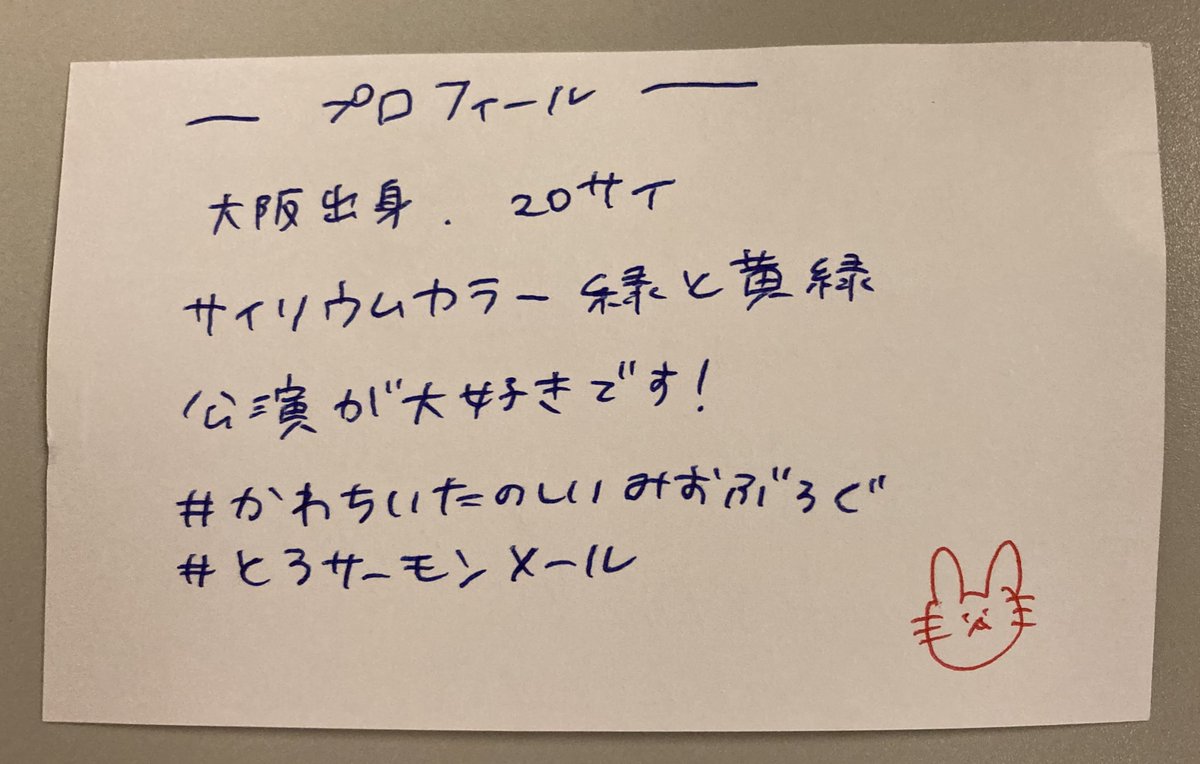 ― プロフィール ―
大阪出身. 20サイ
サイリウムカラー 緑と黄緑
公演が大好きです!
#かわちいたのしいみおぶろぐ
#とろサーモンメール